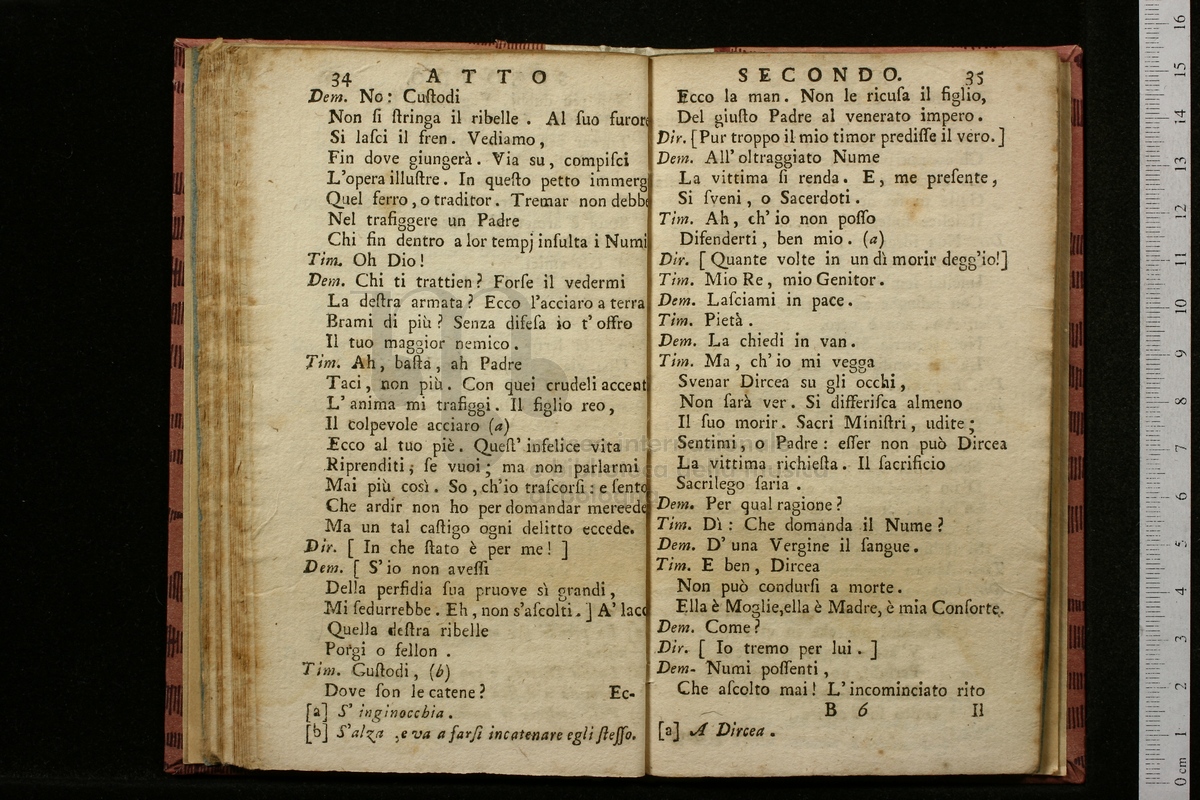 34 ATTO
Dem. No: Cuſtodi
Non ſi ſtringa il ribelle. Al ſuo furore
Si laſci il fren. Vediamo,
Fin dove giungerà. Via su, compiſci
L'opera illuſtre. In queſto petto immerg
Quel ferro, o traditor. Tremar non debbe
Nel trafiggere un Padre
Chi fin dentro a lor tempj inſulta i Numi
Tim. Oh Dio!
Dem. Chi ti trattien? Forſe il vedermi
La deſtra armata? Ecco l'acciaro a terra
Brami di più? Senza difeſa io t'offro
Il tuo maggior nemico.
Tim. Ah, baſta, ah Padre
Taci, non più. Con quei crudeli accent
L'anima mi trafiggi. Il figlio reo,
Il colpevole acciaro (a)
Ecco al tuo piè. Queſt' infelice vita
Riprenditi, ſe vuoi; ma non parlarmi
Mai più così. So, ch'io traſcorſi: e ſento
Che ardir non ho per domandar mercede
Ma un tal caſtigo ogni delitto eccede.
Dir. [ In che ſtato è per me! ]
Dem. [ S'io non aveſſi
Della perfidia ſua pruove sì grandi,
Mi ſedurrebbe. Eh, non s'aſcolti. ] A' lacc
Quella deſtra ribelle
Porgi o fellon.
Tim. Cuſtodi, (b)
Dove ſon le catene? Ec-
[a] S' inginocchia.
[b] S'alza, e va a farſi incatenare egli ſteſſo.
SECONDO. 35
Ecco la man. Non le ricuſa il figlio,
Del giuſto Padre al venerato impero.
Dir. [Pur troppo il mio timor prediſſe il vero.]
Dem. All' oltraggiato Nume
La vittima ſi renda. E, me preſente,
Si ſveni, o Sacerdoti.
Tim. Ah, ch' io non poſſo
Difenderti, ben mio. (a)
Dir. [ Quante volte in un dì morir degg'io!]
Tim. Mio Re, mio Genitor.
Dem. Laſciami in pace.
Tim. Pietà.
Dem. La chiedi in van.
Tim. Ma, ch' io mi vegga
Svenar Dircea su gli occhi,
Non ſarà ver. Si differiſca almeno
Il ſuo morir. Sacri Miniſtri, udite;
Sentimi, o Padre: eſſer non può Dircea
La vittima richieſta. Il ſacrificio
Sacrilego ſaria.
Dem. Per qual ragione?
Tim. Dì: Che domanda il Nume?
Dem. D' una Vergine il ſangue.
Tim. E ben, Dircea
Non può condurſi a morte.
Ella è Moglie, ella è Madre, è mia Conſorte.
Dem. Come?
Dir. [ Io tremo per lui. ]
Dem- Numi poſſenti,
Che aſcolto mai! L'incominciato rito
B 6 Il
[a] A Dircea.